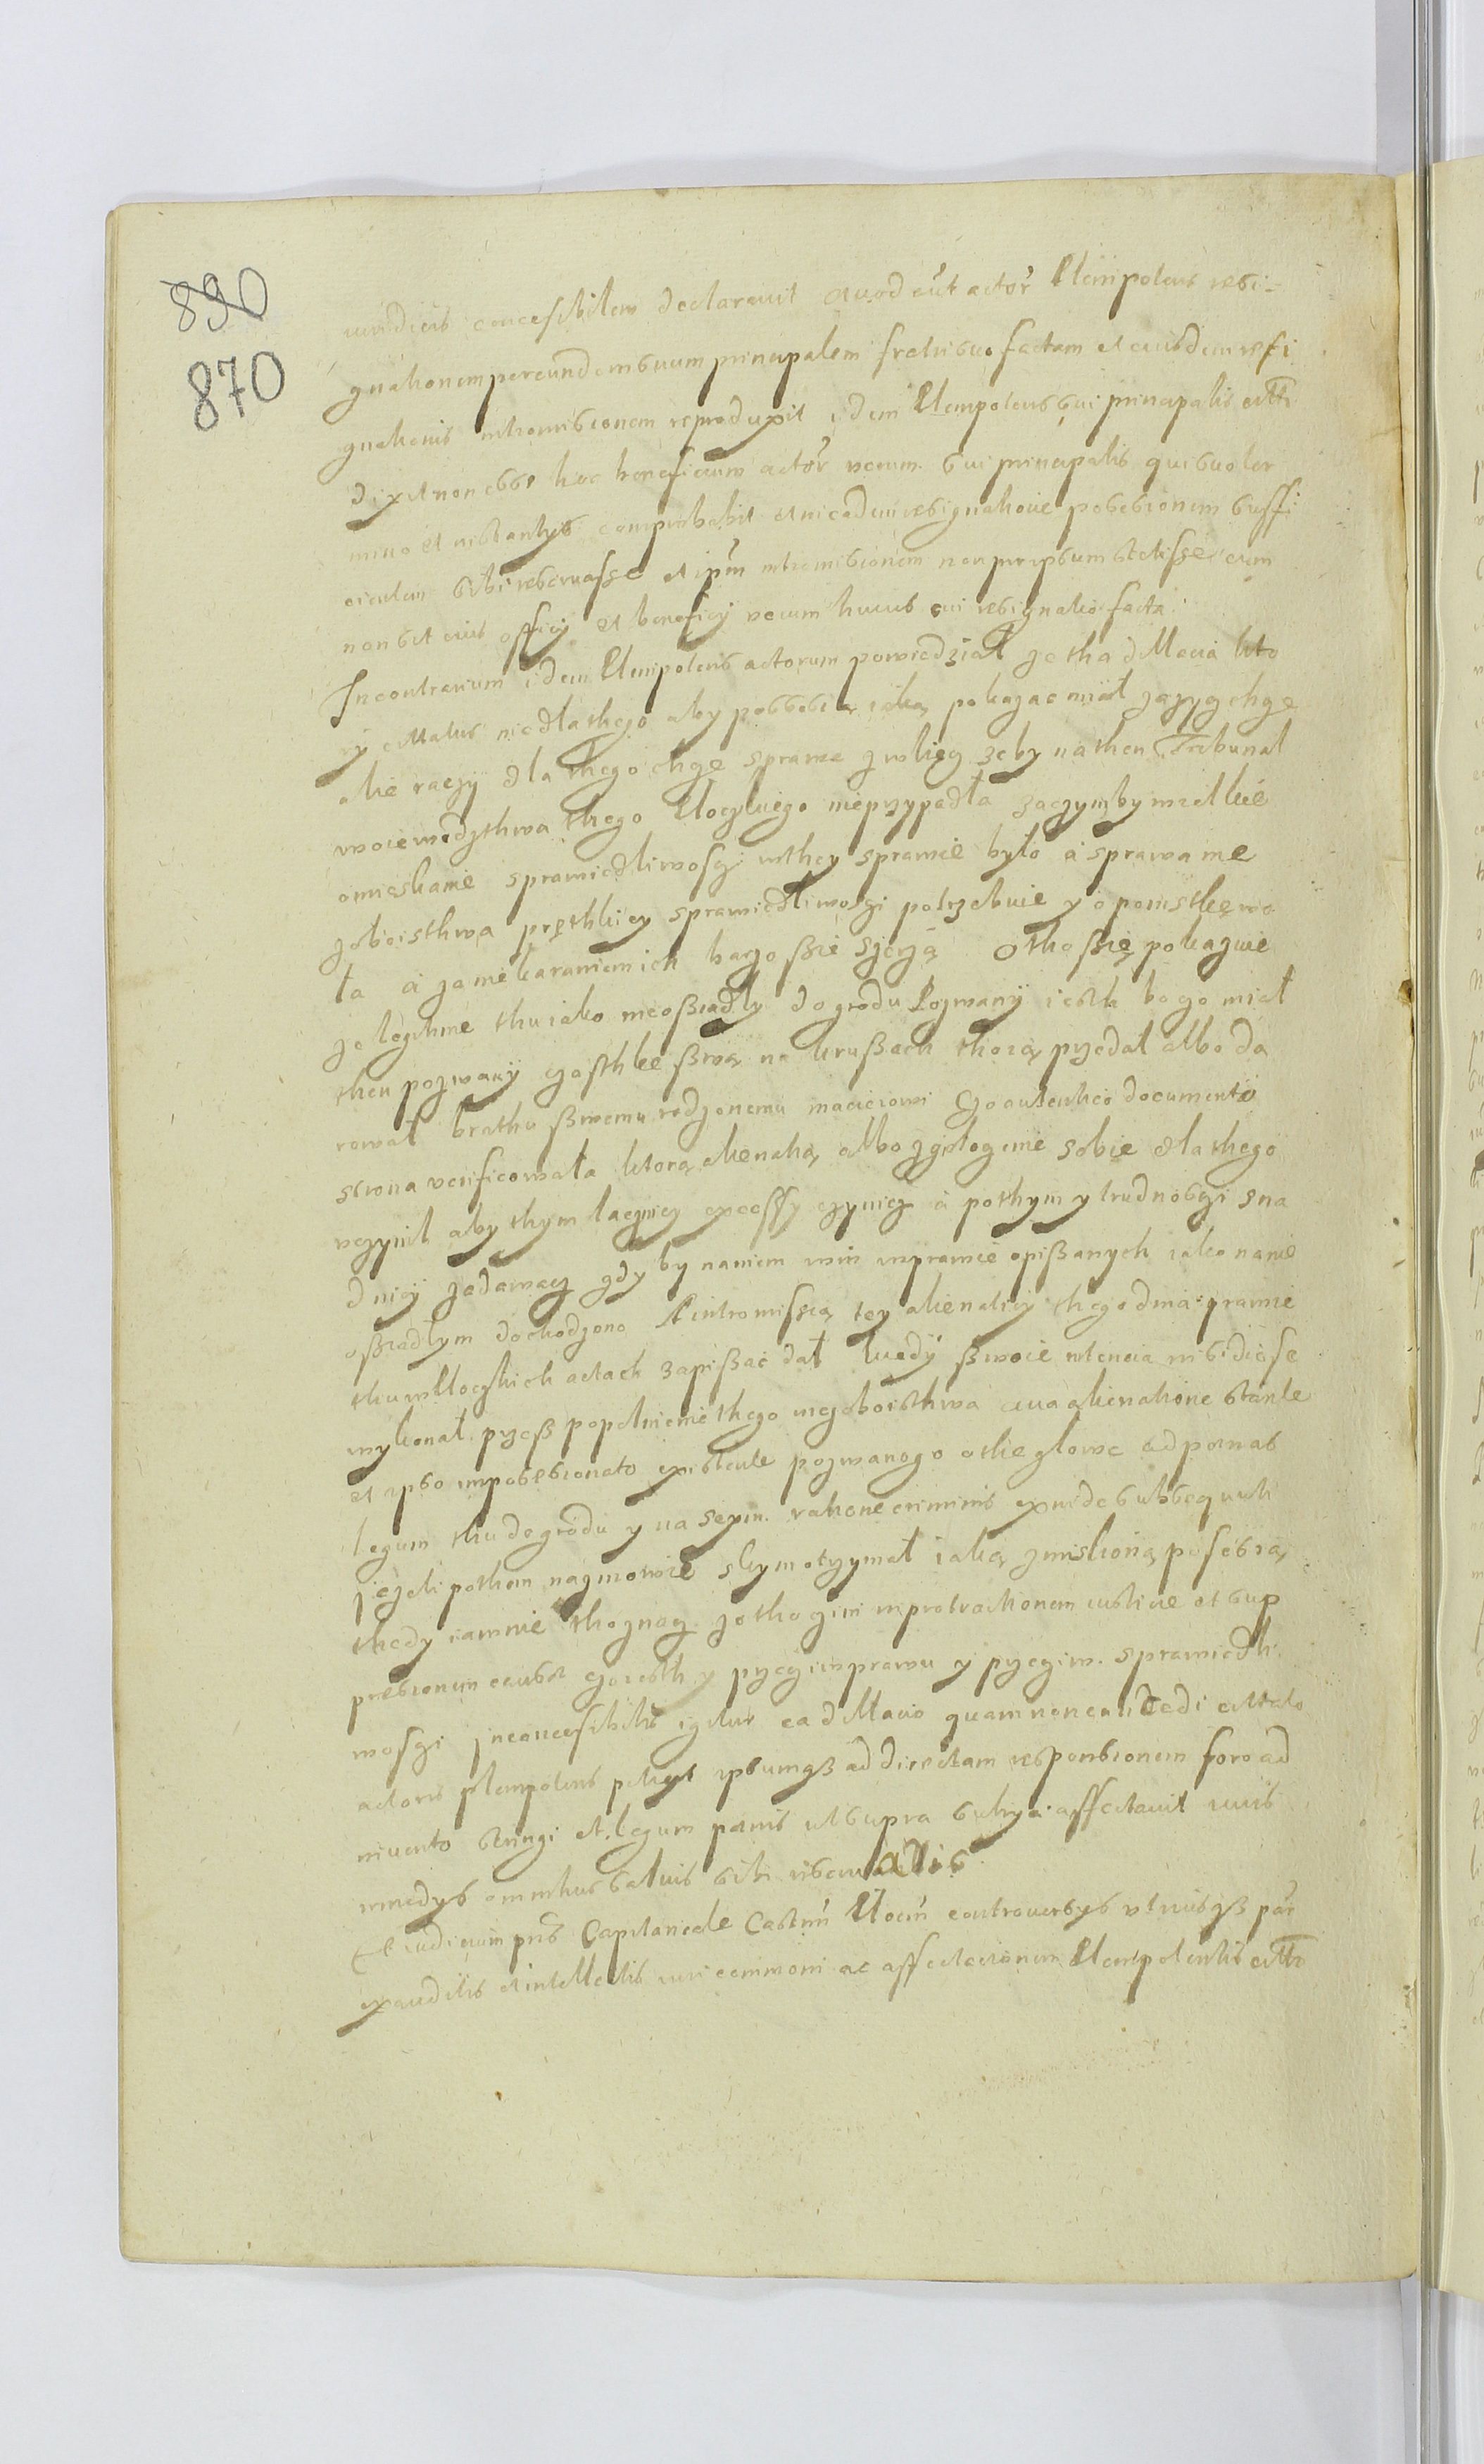 890
870
iuridicis concessibilem declarauit Quod aūt actor Plenipotens resi-
gnationem per eundem suum principalem fratri suo factam et eiusdem resi
gnationis intromissionem reproduxit idem Plenipotens sui principalis citti
dixit non esse hoc beneficium actor̃ verum sui principalis qui suo ter
mino et instantys comprobabit et in eadem resignatione possessionem suffi
cientem sibi reservasse et ipm̃ intromissionem non per ipsum stetisse cum
non sit eius officy et beneficy verum huius cui resignatio facta
In contrarium idem Plenipotens actorum powiedział ze tha dillacia kto
ry cittatus nie dla thego aby possessią iaką pokazac miał zazyg chge
alie raczÿ dla thego chge sprawe zwliecz zeby na then Tribunal
woiewodzthwa thego Plockiego nie przypadla zaczym by wielkié
omieskanie sprawiedliwosczi w they sprawie było á sprawa me
zoboisthwa prethkiey sprawiedliwosgi potrzebuie y o pomstke wo
ła á za niekaraniem ich barzo ßie szerzą Otho ßię pokazuie
ze legitime thu iako nieoßiadly do grodu Pozwanÿ iesth bo go miał
then pozwanÿ czesthke ßwą na krußach thorą przedał albo da
rował brathu ßwemu rodzonemu macieiowi Czo autentico documento
strona verificowała ktorą alienatią albo zgologenie sobie dla thego
vczynil aby thym lacniey excessy czynicz á pothym y trudnosczi sna
dnieÿ zadawacz gdy by naniem win w prawie opißanych iako na nie
oßiadlym dochodzono A intromissią tey alienatiey thego dnia prawie
thu w Plockich actach zapißać dał kiedÿ ßwoie intencia insidiose
wykonał przeß popelnienie thego mezoboisthwa qua alienatione stante
et ipso impossessionato existente pozwanego o tlie glowe ad poenas
legum thu do grodu y na seym. ratione criminis exinde subsequuti
jezeli pothem nazmowie s kym otrzymał iaką zmislioną possessią
thedy iawnie tho znacz ze tho czini in protractionem iustitiae et sup
pressionem causae czo iesth y przeciw prawu y przeciw. sprawiedli
wosgi jnconcessibilis igitur ea dillatio quam non concedi cittato
actoris plenipotens petiyt ipsumqß ad directam responsionem foro ad
inuento stringi et legum poenis ut supra subijci affectauit iuris
remedys omnibus saluis sibi reservatis
Et iudicium pn̄s Capitaneale Castreñ Plocen̄ controuersys vtriusqß par̃
exauditis et intellectis iuri communi ac affectationem Plenipotentis citti